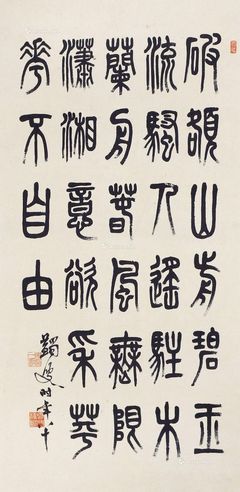 破額山前碧玉
流騷人遙駐木
蘭舟春風無限
瀟湘意欲采苹
華不自由
蠲叟時年八十